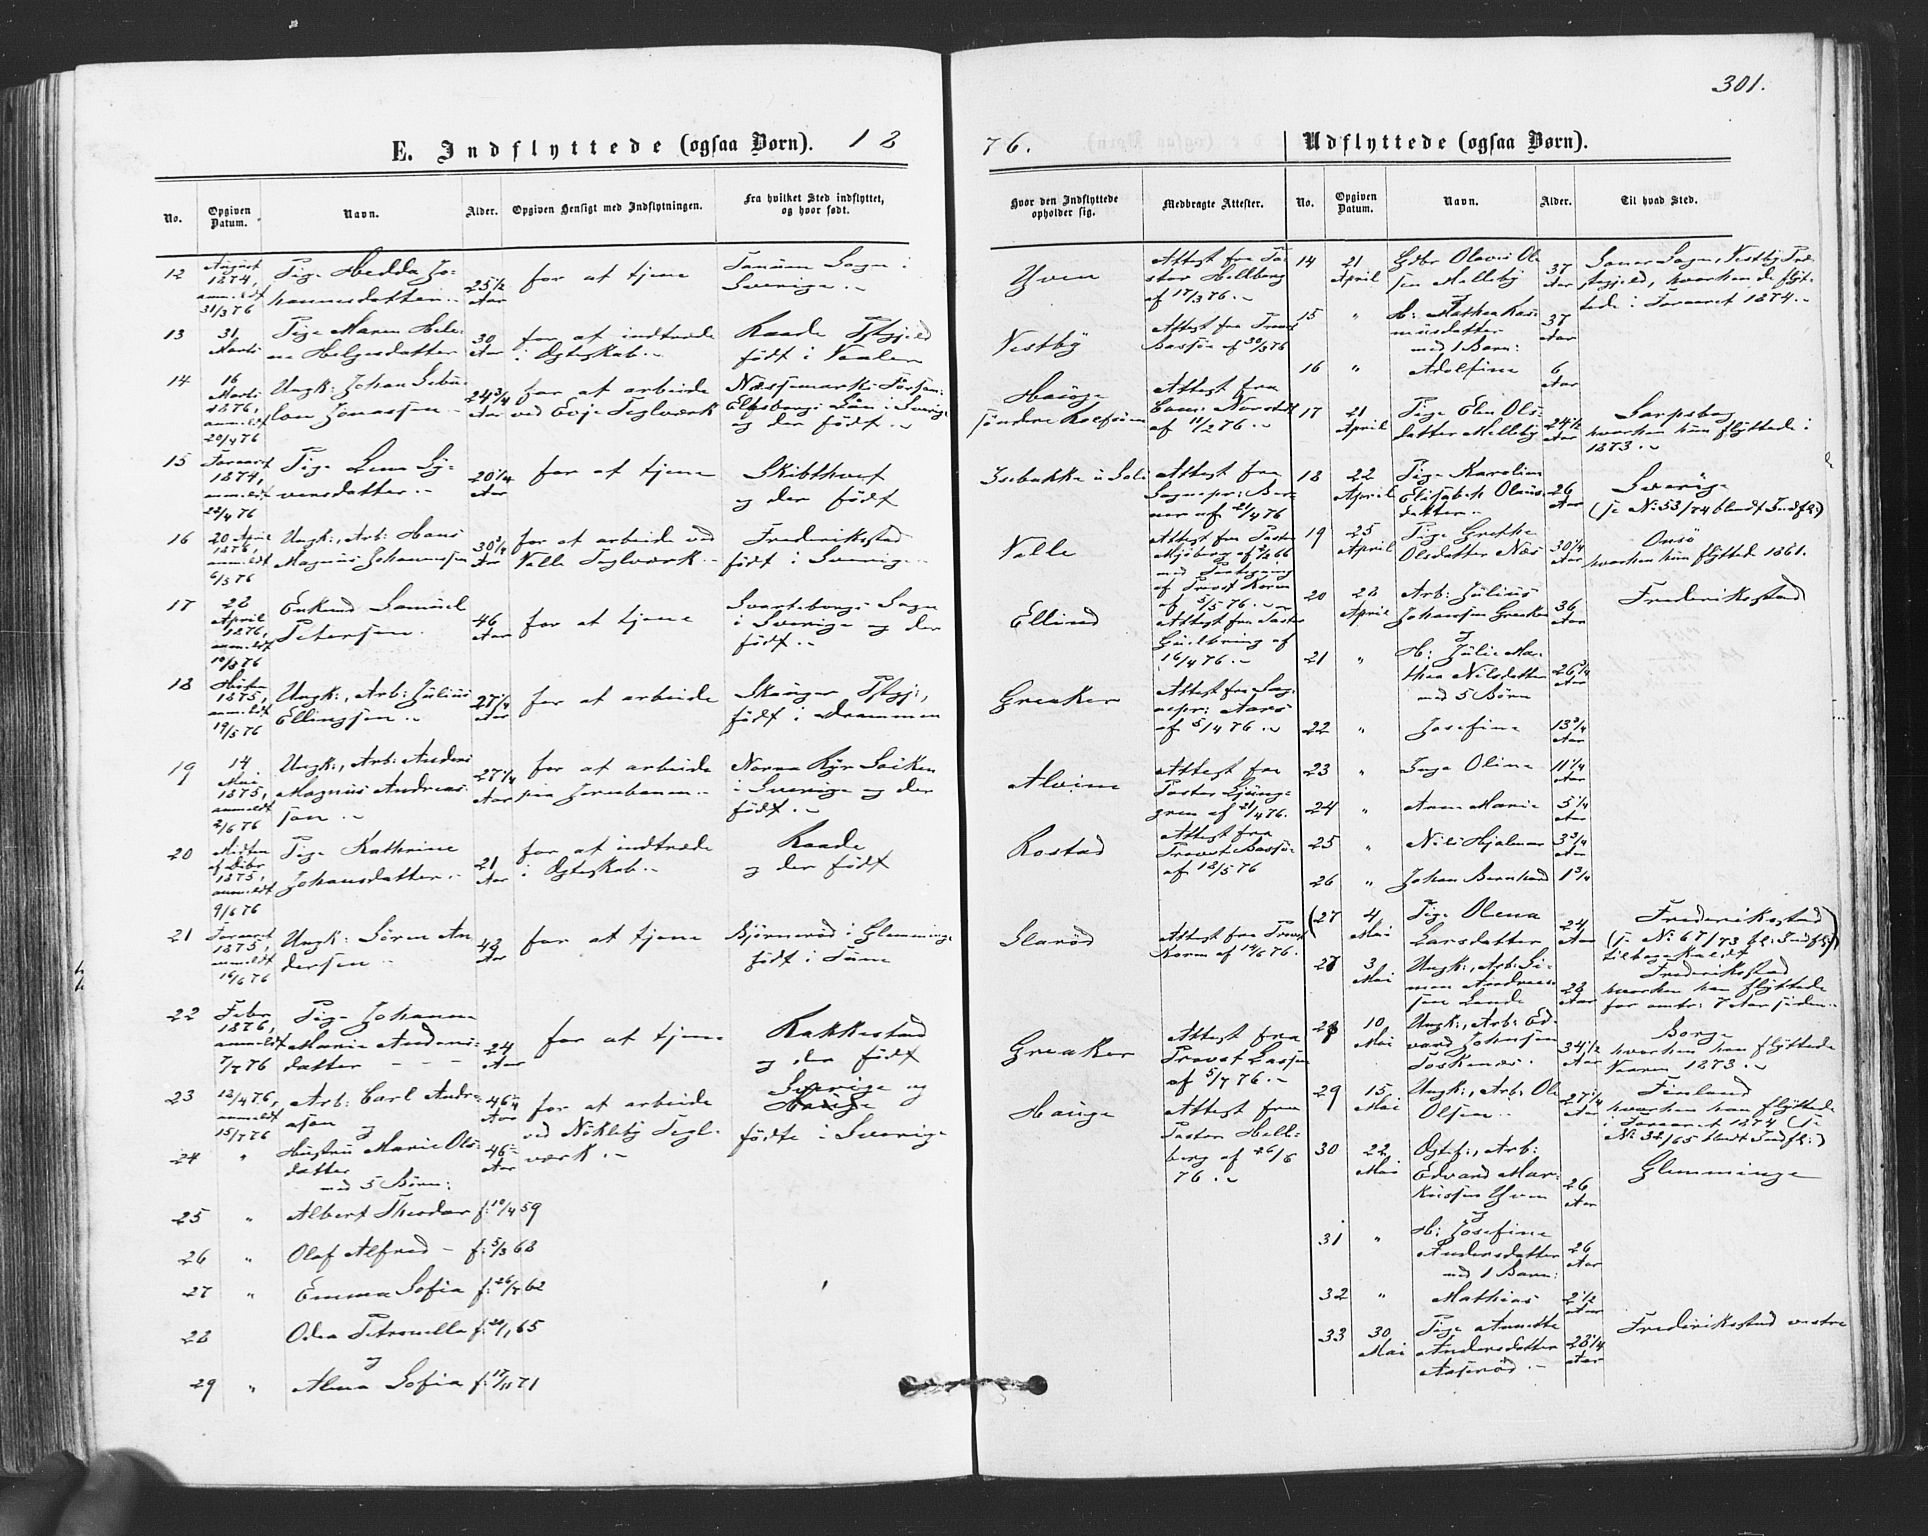 301.
E. Indflyttede (ogsaa Børn). 18
76. Udflyttede (ogsaa Børn).
No. Opgiven Datum. Navn. Alder. Opgiven Hensigt med Indflytningen. Fra hvilket Sted indflyttet, og hvor født.
Hvor den Indflyttede opholder sig. Medbragte Attester. No. Opgiven Datum. Navn. Alder. Til hvad Sted.
12 August 1874, anmeldt 31/3 76 Pige Hedda Johannesdatter 25 1/2 Aar for at tjene Tanum Sogn i Sverige
Yven Attest fra Pastor Hellberg af 17/3 76.
13 31 Marti Pige Maren Helene Helgesdatter 30 Aar for at indtræde i Ægteskab. Raade Pstgjeld født i Vaaler
Vestby Attest fra Provst Bassøe af 30/3 76
14 16 Marti 1876, anmeldt 20/4 76 Ungk: Johan Jonassen 24 3/4 Aar for at arbeide ved Evje Teglværk Elfsborgs Län i Sverige og der født.
Hauge søndre Rolfsøen Attest fra af 11/2 76.
15 Foraaret 1874, anmeldt 22/4 76 Pige Lena Syvensdatter 20 1/4 Aar for at tjene Skibthvet og der født
Isebakke Attest fra Sognepr: af 21/4 76
16 20 April 1876, anmeldt 6/5 76 Ungk:, Arb: Hans Magnus Johannessen 30 3/4 Aar for at arbeide ved Valle Teglværk Frederikstad født i Sverige
Valle Attest fra Pastor med Paategning af Provst Koren af 5/5 76.
17 28 April 1876, anmeldt Enkmd Samuel Petersen 46 Aar for at tjene Svarteborgs Sogn i Sverige og der født.
Ellind Attest fra Pastor af 16/4 76.
18 Høsten 1875, anmeldt 19/5 76 Ungk:, Arb: Julius Ellingsen 27 1/4 Aar for at arbeide Skauger Pstgj:, født i Drammen
Greaker Attest fra Sognepr: Aars af 5/4 76.
19 14 Mai 1875, anmeldt 2/6 76 Ungk:, Arb: Anders Magnus Andreassen 27 1/4 Aar for at arbeide paa Jernbanen Norra Ryr i Sverige og der født.
Alvim Attest fra Pastor Ljunggren af 21/4 76.
20 Midten af Debr 1875, anmeldt 9/6 76 Pige Kathrine Johansdatter 21 Aar for at indtræde i Ægteskab. Raade og der født
Rostad Attest fra Provst Bassøe af 18/5 76
21 Foraaret 1875, anmeldt 16/6 76 Ungk: Søren Andersen 48 Aar for at tjene Bjørnerød i Glemminge født i Tune
Attest fra Provst Koren af 14/6 76.
22 Febr 1876, anmeldt 7/7 76 Pige Johanne Marie Andersdatter 24 Aar for at tjene Rakkestad og der født
Greaker Attest fra Provst Lassen af 5/7 76.
23 12/4 76, anmeldt 15/7 76 Arb: Carl Andreasen og 46 Aar for at arbeide ved Nokleby Teglværk. Sverige og Hauge fødte i Sverige
Hauge Attest fra Pastor Hellberg af 26/6 76.
24 " Hustru Marie Olsdatter 46 Aar
med 5 Børn:
25 " Albert Theodor f: 10/4 59
26 " Olaf Alfred f: 5/3 68
27 " Emma Sofia f: 26/7 62
28 Odea Petronella f: 20/1 65
og
29 " Alma Sofia f: 17/11 71
14 21 April Gdbr Olavis Olsen Melleby 37 Aar Soner Sogn, Vestby Præstegjeld, hvorhen de flyttede i Foraaret 1874.
15 " H: Mathea Rasmusdatter 37 Aar
med 1 Barn:
16 " Adolfine 6 Aar
17 21 April Pige Elen Olsdatter Melleby 24 1/2 Aar Sarpsborg hvorhen hun flyttede i 1873.
18 22 April Pige Karoline Elisabeth Olausdatter 26 Aar Sverige (se No: 53/74 blandt Indfl:)
19 25 April Pige Grethe Olsdatter Næs 30 1/4 Aar Onsø hvorhen hun flyttede 1861.
20 28 April Arb: Julius Johansen Greaker 36 Aar Frederikstad
og
21 " H: Julie Marthea Nilsdatter 26 3/4 Aar
med 5 Børn
22 " Josefine 13 3/4 Aar
23 " Inga Oline 11 1/4 Aar
24 " Anne Marie 5 1/4 Aar
25 " Nils Hjalmar 3 3/4 Aar
26 " Johan Bernhard 1 3/4
(27 4 Mai Pige Olena Larsdatter 24 Aar Frederikstad (se No 67/73 bl: Indfl:) tilbagekaldt
27 3 Mai Ungk:, Arb: Simen Andreassen Lande 28 Aar Frederikstad hvorhen han flyttede for omtr: 7 Aar siden.
28 10 Mai Ungk:, Arb: Edvard Johnsen Torkenæs 34 1/2 Aar Borge hvorhen han flyttede Vaaren 1873.
29 15 Mai Ungk:, Arb: Ole Olsen 27 1/4 Aar Finland hvorhen han flyttede i Foraaret 1874 (se No: 32/65 blandt Indfl:)
30 22 Mai Ægtef:, Arb: Edvard Markussen Yven 26 Aar Glemminge
og
31 " H: Josefine Andersdatter 26 Aar
med 1 Barn:
32 " Mathias 2 1/2 Aar
33 30 Mai Pige Annette Andersdatter Aaserød 28 1/4 Aar Frederikstad vestre